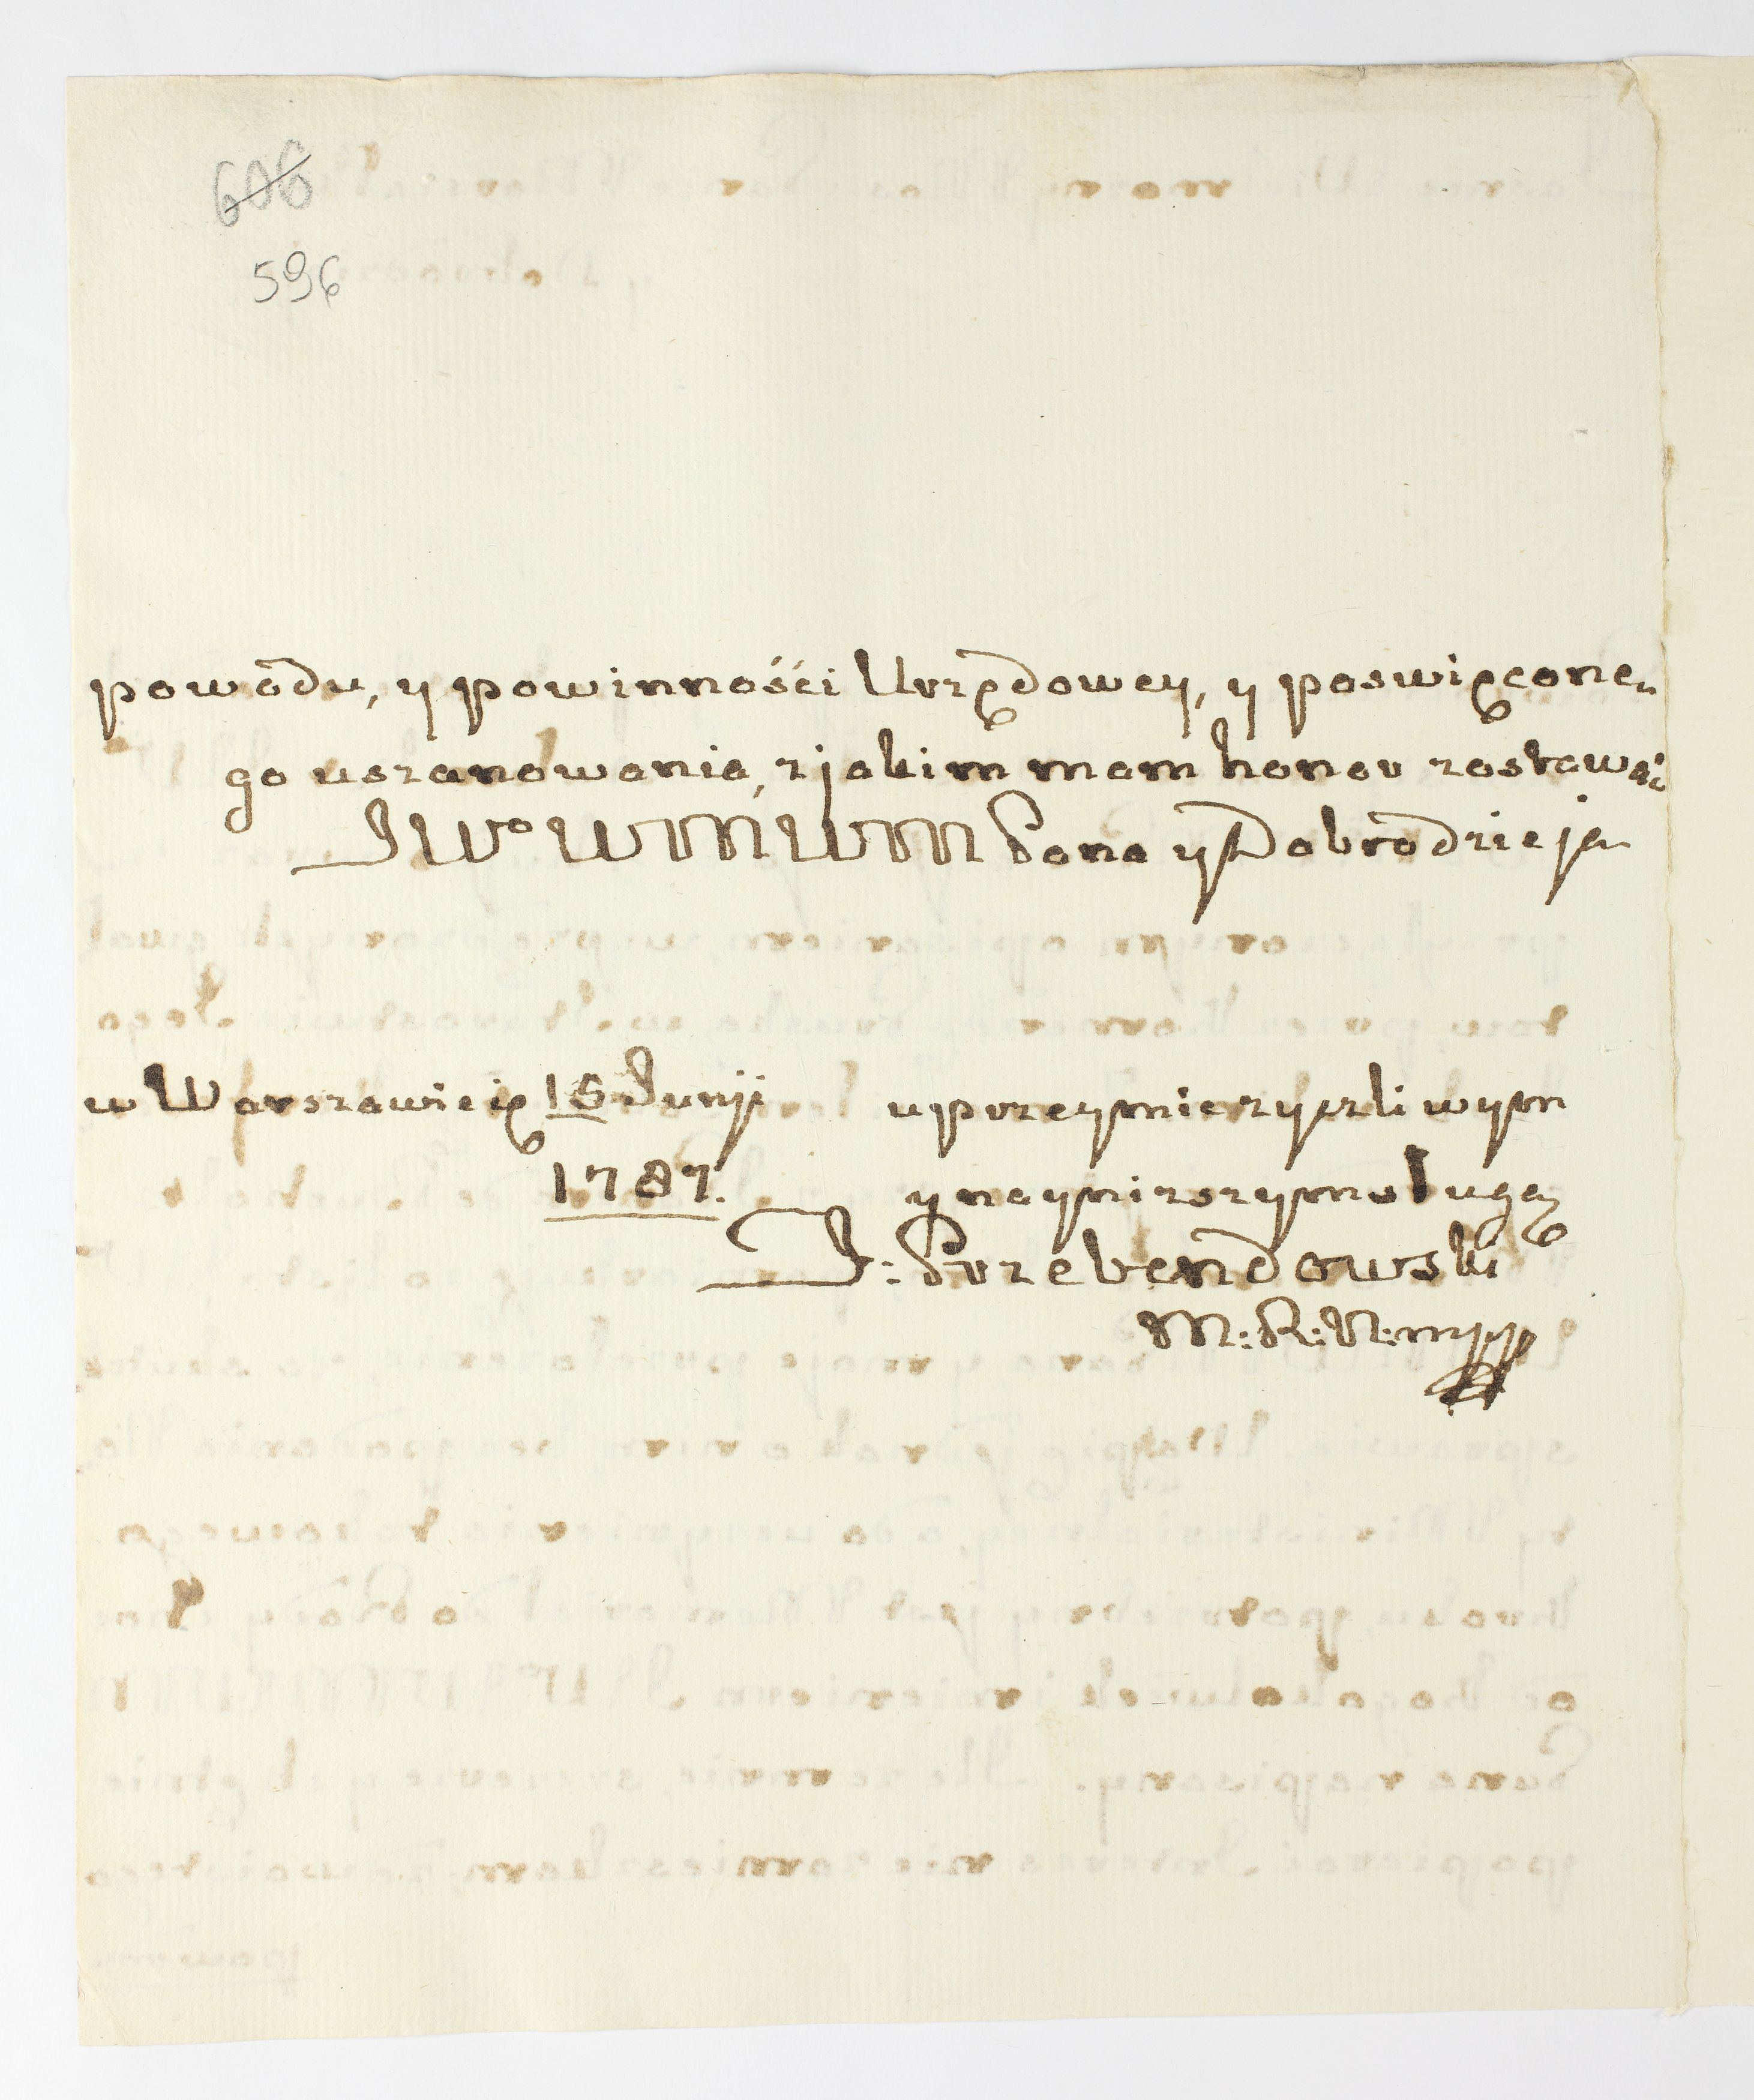 606
596
powodu, y powinnośći Urzędowey, y poswięcone-
go uszanowania, z jakim mam honor zostawać
JWo WMWM Pana y Dobrodzieja
w Warszawie 15 Junji uprzeymie zyczliwym
1787. y nayniższym sługą
J: Przebendowski
M: R: N: mpp